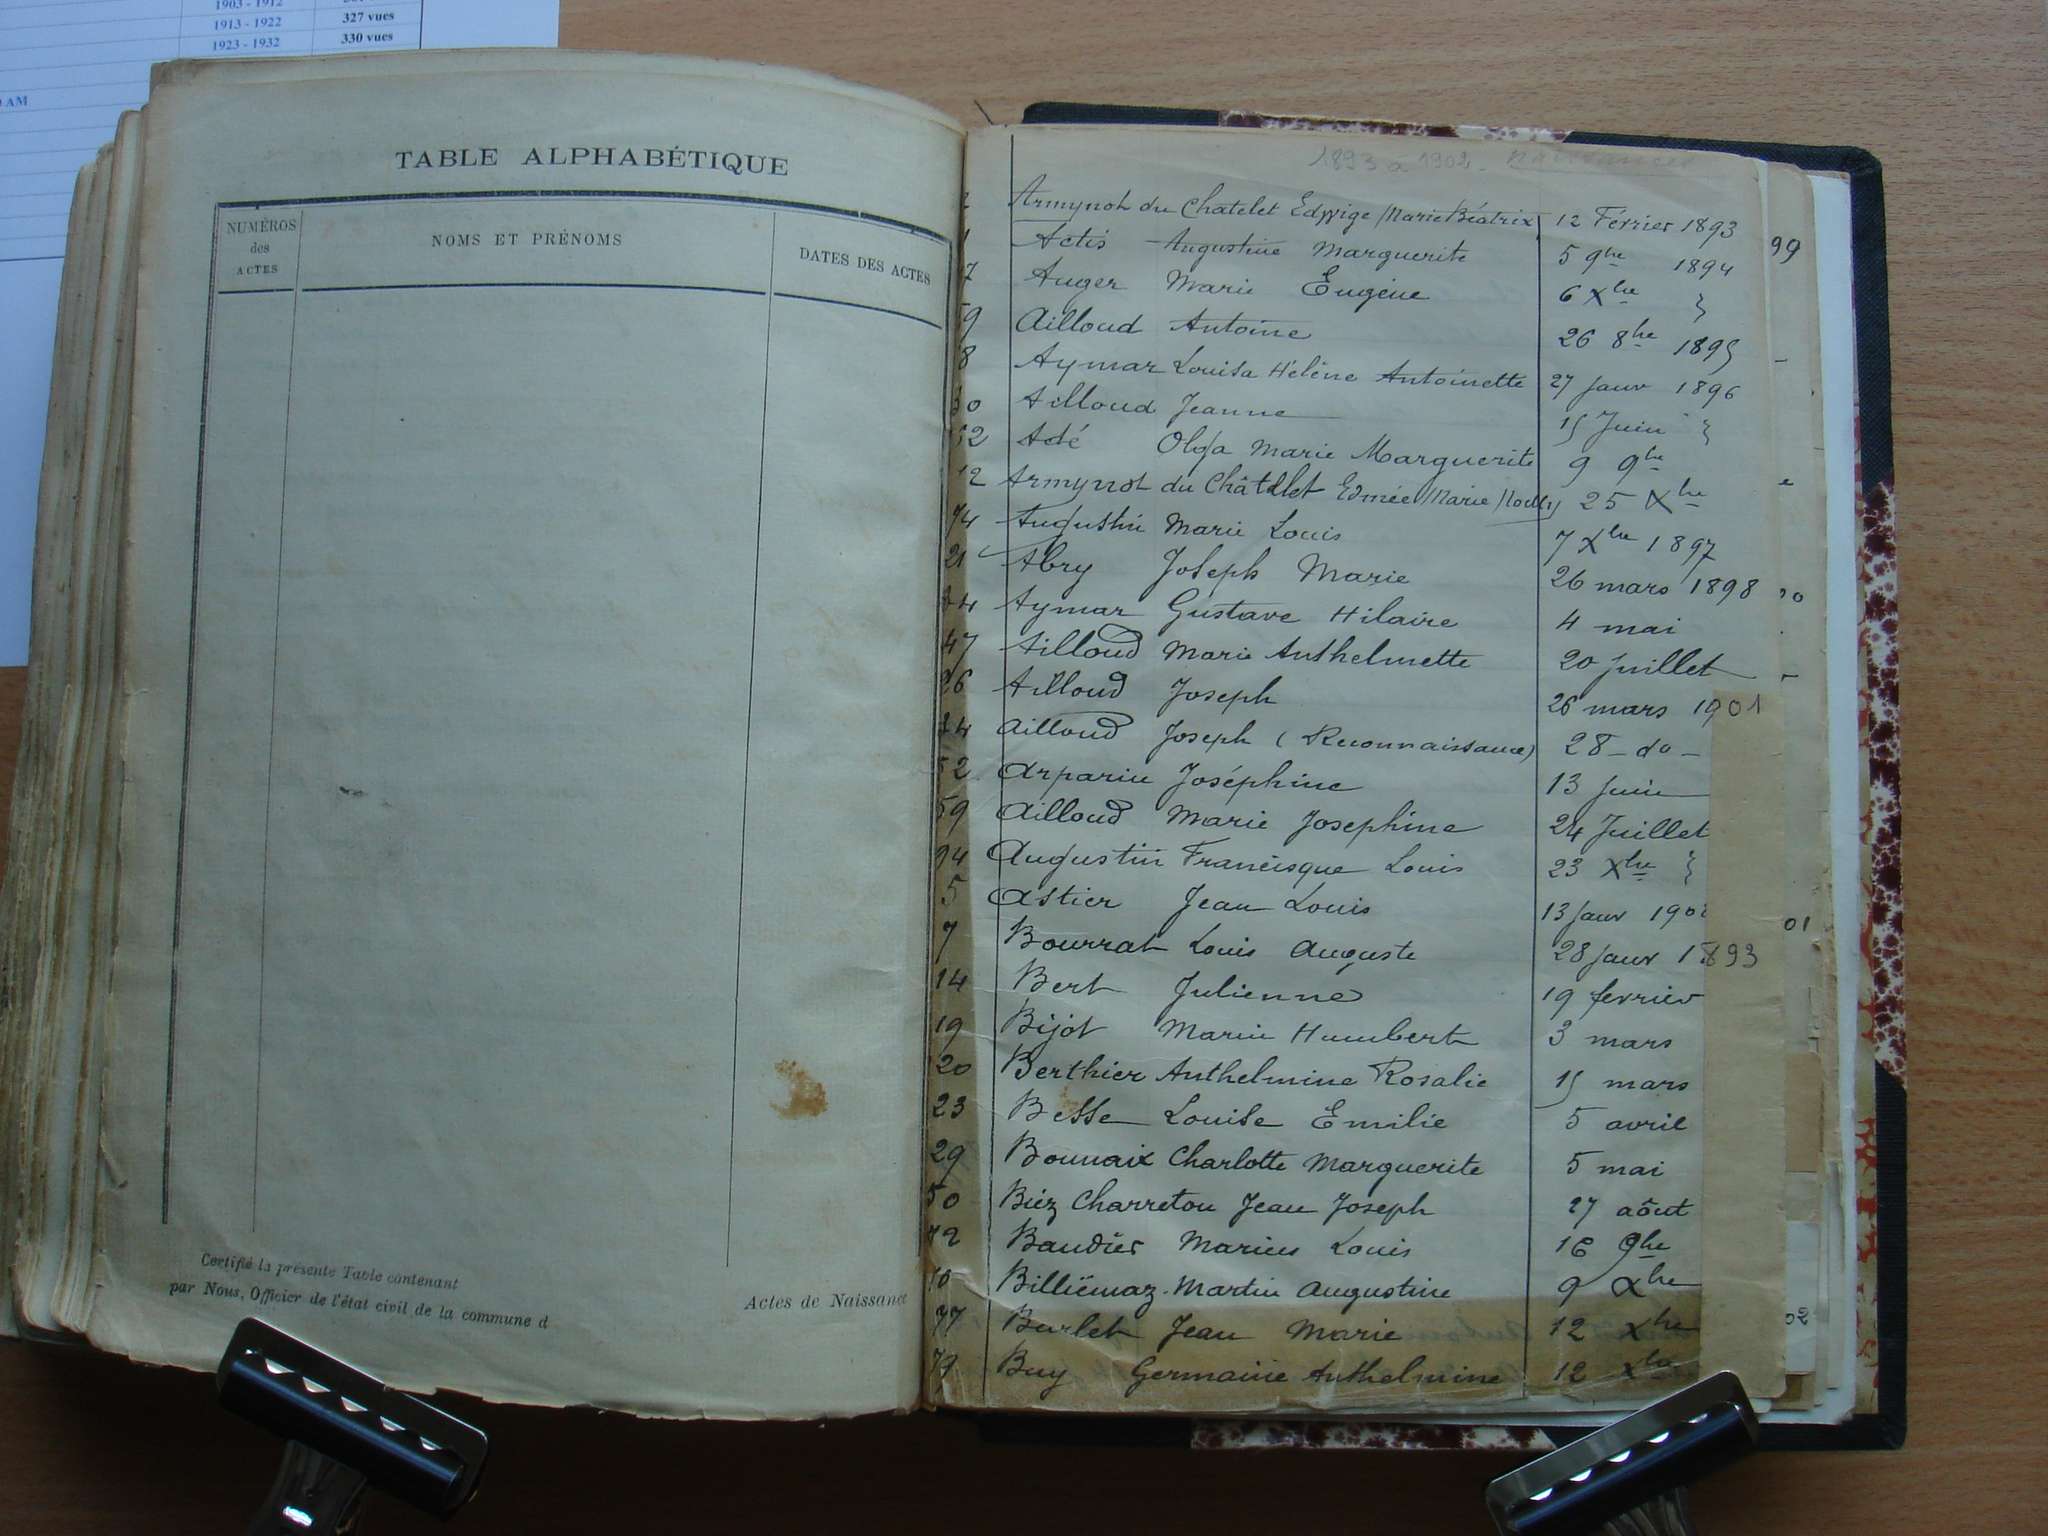 1903 - 1912
1913 - 1922 327 vues
1923 - 1932 330 vues
AM
TABLE ALPHABÉTIQUE
NUMÉROS des ACTES
NOMS ET PRÉNOMS
DATES DES ACTES
Certifié la présente Table contenant
par Nous, Officier de l'état civil de la commune d
Actes de Naissance
1893 à 1902. Naissances
Armynot du Chatelet Edwige Marie Béatrix 12 Février 1893
Actis Augustine Marguerite 5 9bre 1894
Auger Marie Eugène 6 Xbre
Ailloud Antoine 26 8bre 1895
Aymar Louisa Hélène Antoinette 27 Janv 1896
Ailloud Jeanne 15 Juin
Adé Olga Marie Marguerite 9 9bre
12 Armynot du Châtelet Edmée Marie 25 Xbre
74 Augustin Marie Louis 7 Xbre 1897
21 Abry Joseph Marie 26 mars 1898
34 Aymar Gustave Hilaire 4 mai
47 Ailloud Marie Anthelmette 20 juillet
26 Ailloud Joseph 26 mars 1901
Ailloud Joseph (Reconnaissance) 28 - do -
52 Arparin Joséphine 13 Juin
59 Ailloud Marie Josephine 24 Juillet
94 Augustin Francisque Louis 23 Xbre
5 Astier Jean Louis 13 Janv 1902
7 Bourrat Louis Auguste 28 Janv 1893
14 Bert Julienne 19 fevrier
19 Bijot Marin Humbert 3 mars
20 Berthier Anthelmine Rosalie 15 mars
23 Besse Louise Emilie 5 avril
29 Bonnaix Charlotte Marguerite 5 mai
50 Biéz Charreton Jean Joseph 27 aôut
72 Baudier Marius Louis 16 9bre
Billiémaz Martin Augustine 9 Xbre
77 Burlet Jean Marie 12 Xbre
79 Buy Germaine Anthelmine 12 Xbre
99
01
02